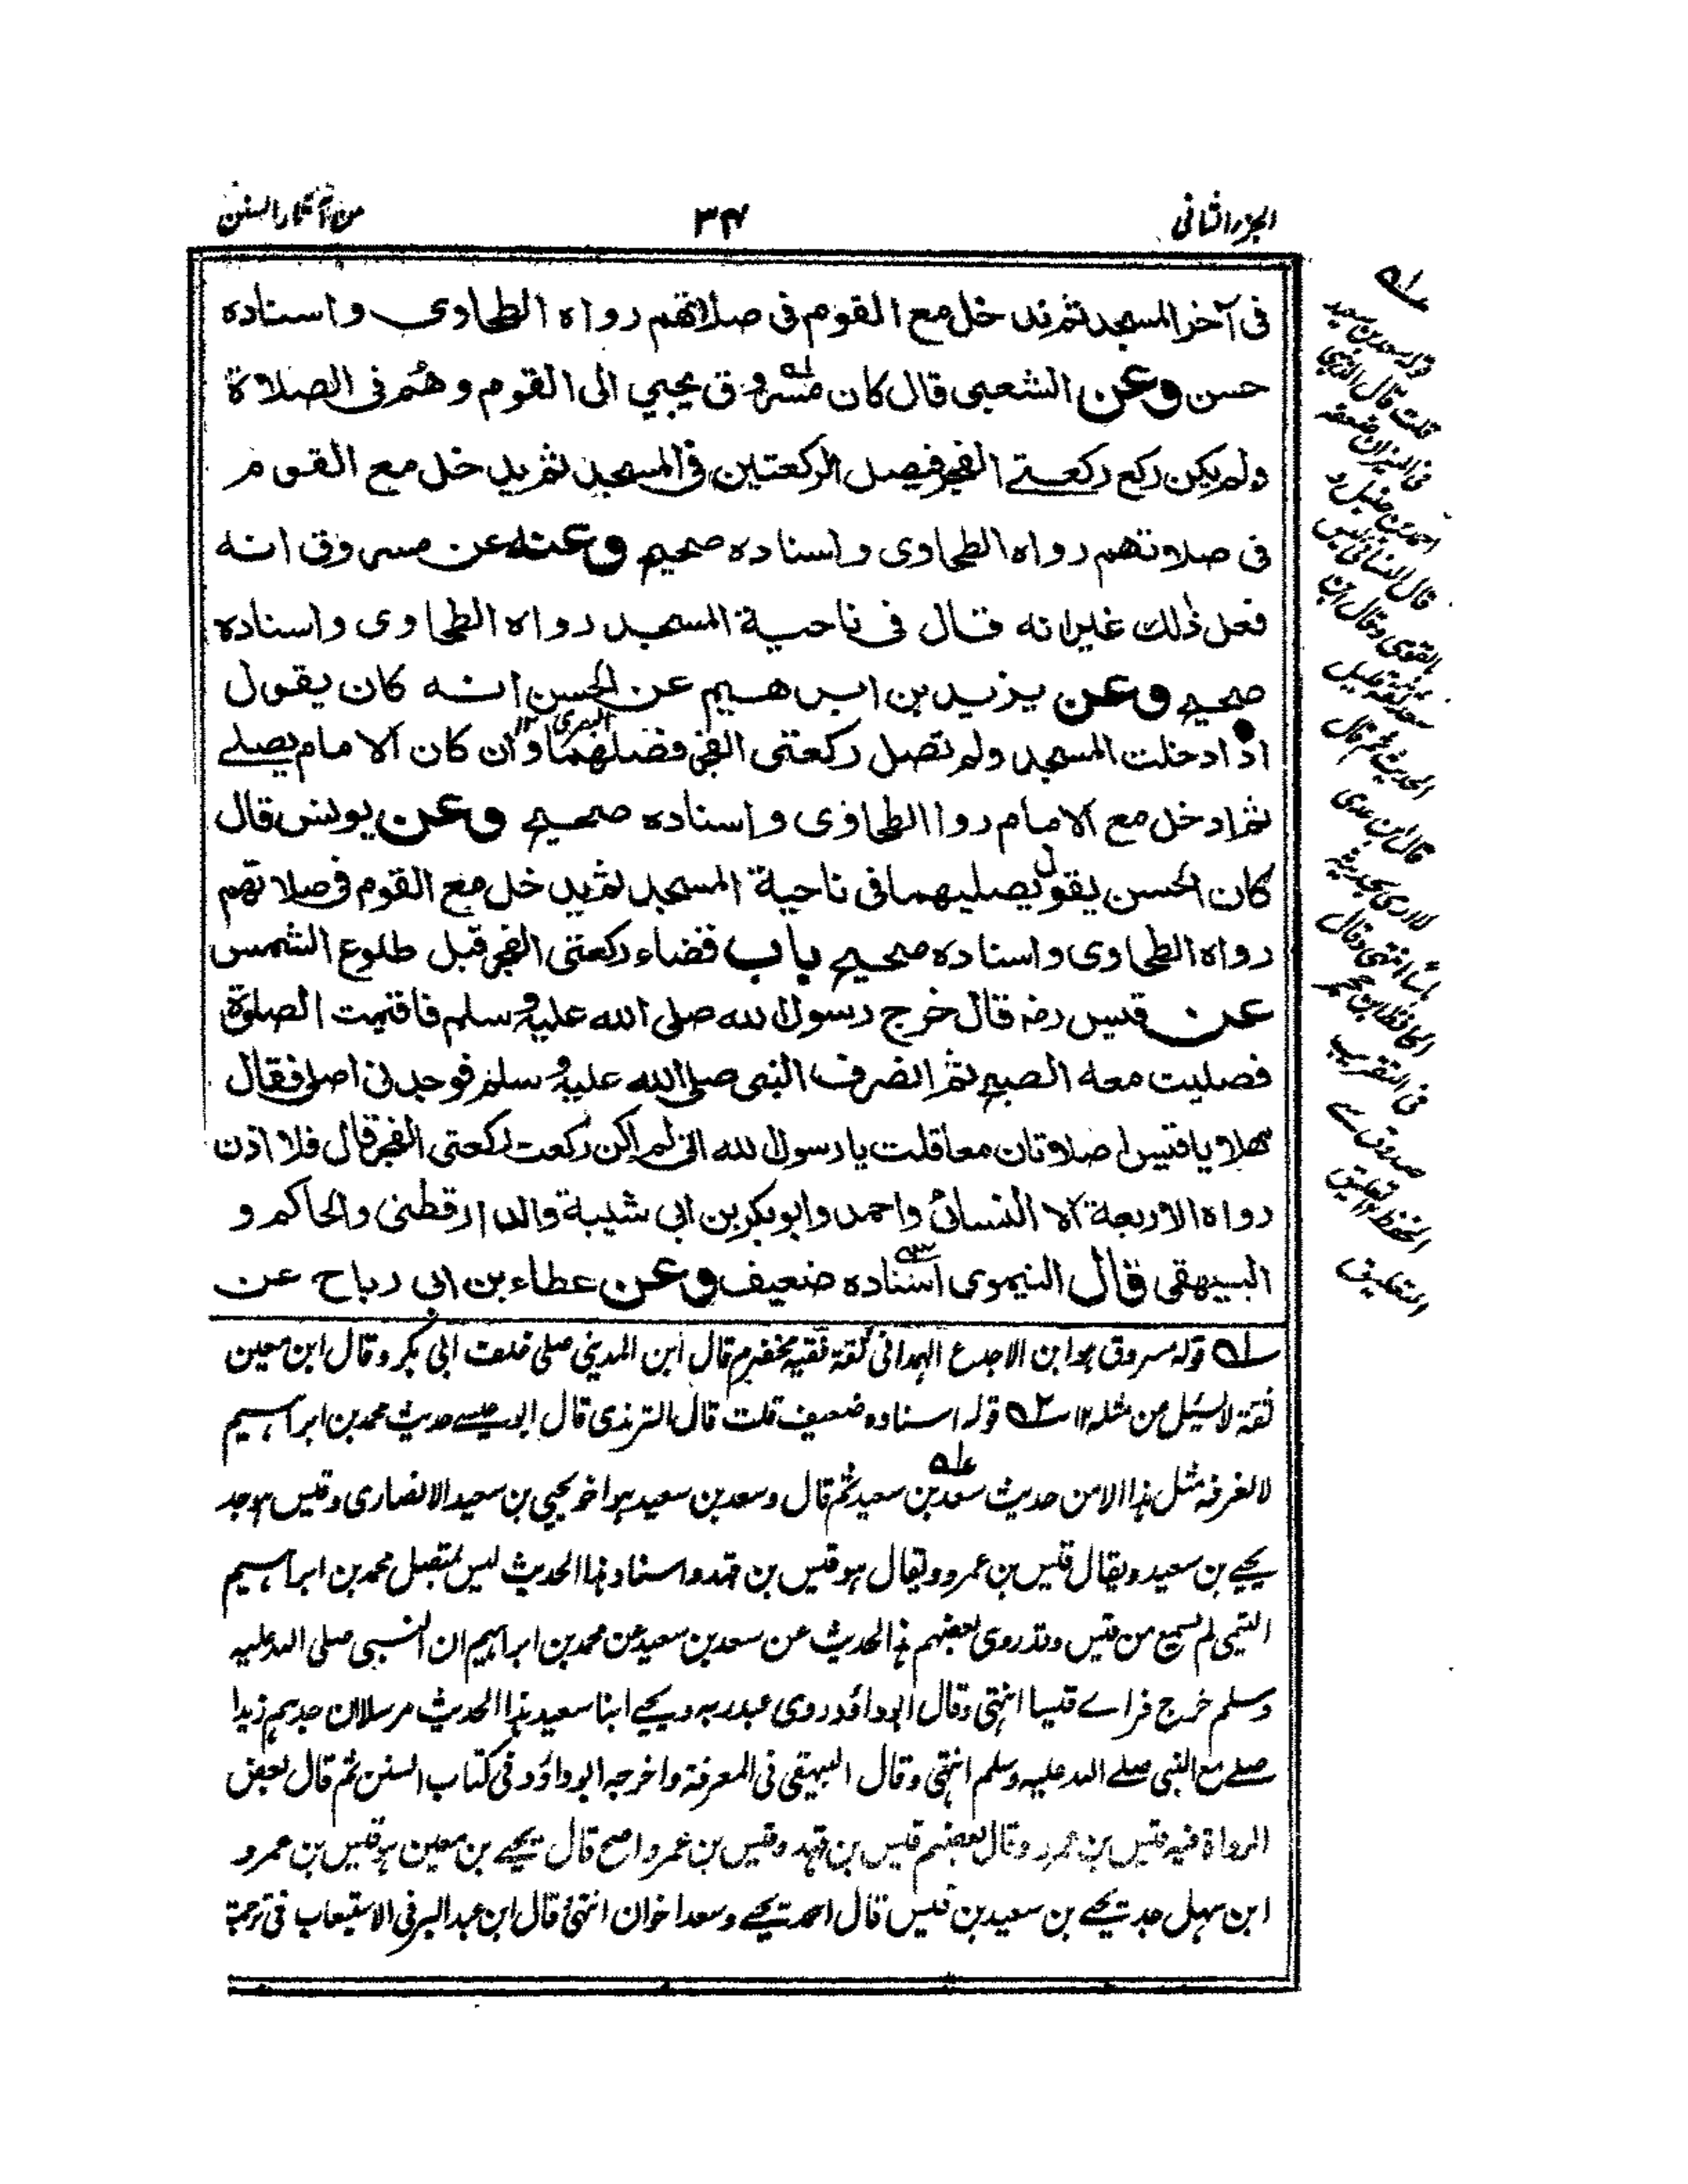 الجزء الثانی
۳۴
من آثار السنن
فی آخر المسجد ثم يدخل مع القوم فی صلاتهم رواه الطحاوی واسناده
حسن وعن الشعبی قال کان مسروق يجیي الی القوم وهم فی الصلاة
ولم يکن رکع رکعتے الفجر فيصل الرکعتين فی المسجد ثم يدخل مع القوم
فی صلاتهم رواه الطحاوی واسناده صحيح وعنه عن مسروق انه
فعل ذلك غير انه قال فی ناحية المسجد رواه الطحاوی واسناده
صحيح وعن يزيد بن ابرهيم عن الحسن انه کان يقول
البصری ۱۲
اذا دخلت المسجد ولم تصل رکعتی الفجر فصلهما وان کان الامام يصلے
ثم ادخل مع الامام رواا الطحاوی واسناده صحيح وعن يونس قال
کان الحسن يقول يصليهما فی ناحية المسجد ثم يدخل مع القوم فی صلاتهم
رواه الطحاوی واسناده صحيح باب قضاء رکعتی الفجر قبل طلوع الشمس
عن قيس رضہ قال خرج رسول الله صلی الله عليه وسلم فاقيمت الصلوة
فصليت معه الصبح ثم انصرف النبی صلی الله عليه وسلم فوجدنی اصلی فقال
مهلا يا قيس اصلاتان معا قلت يا رسول الله انی لم اکن رکعت رکعتی الفجر قال فلا اذن
رواه الاربعة الا النسائی واحمد وابوبکر بن ابی شيبة والدارقطنی والحاکم و
البيهقی قال النيموی اسناده ضعيف وعن عطاء بن ابی رباح عن
۱؎ قوله مسروق هو ابن الاجدع الهمدانی ثقة فقيه مخضرم قال ابن المدينی صلی خلف ابی بکر وقال ابن معين
ثقة لا يسئل عن مثله ۱۲ ۲؎ قوله اسناده ضعيف قلت قال الترمذی قال ابو عيسے حديث محمد بن ابراهيم
لا نعرفه مثل هذا الا من حديث سعد بن سعيد ثم قال وسعد بن سعيد هو اخو يحيي بن سعيد الانصاری وقيس هو جد
يحيے بن سعيد ويقال قيس بن عمرو ويقال هو قيس بن قهد واسناد هذا الحديث ليس بمتصل محمد بن ابراهيم
التيمی لم يسمع من قيس وقد روی بعضهم هذا الحديث عن سعد بن سعيد عن محمد بن ابراهيم ان النبی صلی الله عليه
وسلم خرج فراے قيسا انتهی وقال ابو داؤد روی عبد ربه ويحيے ابنا سعيد هذا الحديث مرسلا ان جدهم زيدا
صلے مع النبی صلے الله عليه وسلم انتهی وقال البيهقی فی المعرفة واخرجه ابو داؤد فی کتاب السنن ثم قال بعض
الرواة فيه قيس بن عمرو وقال بعضهم قيس بن قهد وقيس بن عمرو اصح قال يحيے بن معين هو قيس بن عمرو
ابن سهل جد يحيے بن سعيد بن قيس قال احمد يحيے وسعد اخوان انتهی قال ابن عبد البر فی الاستيعاب فی ترجمة
۱؎
قوله سعد بن سعيد
قلت قال الذهبی
فی الميزان ضعفه
احمد بن حنبل و
قال النسائی ليس
بالقوی وقال ابن
سعد ثقة قليل
الحديث ثم قال
قال ابن عدی
لا اری بحديثه
باسا انتهی وقال
الحافظ ابن حجر
فی التقريب
صدوق سے
الحفظ ۱۲ تعليق
التعليق